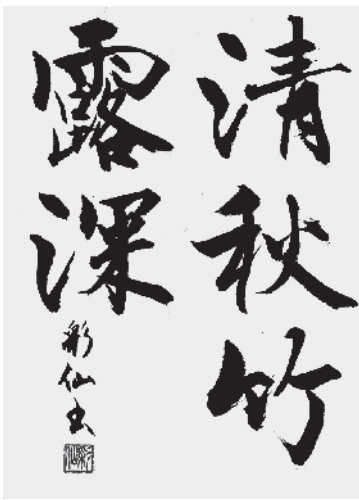 清秋竹
露深
彩仙书